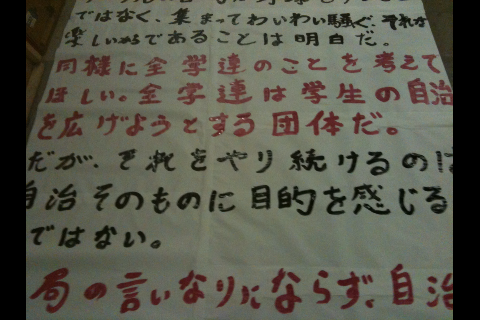 ではなく、集まってわいわい騒ぐ、それが
楽しいからであることは明白だ。
同様に全学連のことを考えて
ほしい。全学連は学生の自治
を広げようとする団体だ。
だが、それをやり続けるのは
自治そのものに目的を感じる
ではない。
局の言いなりにならず、自治